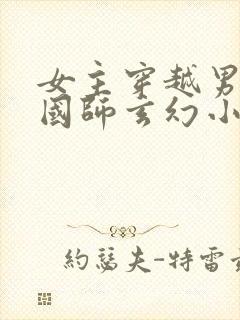 女主穿越男
國師玄幻小
約瑟夫-特雷